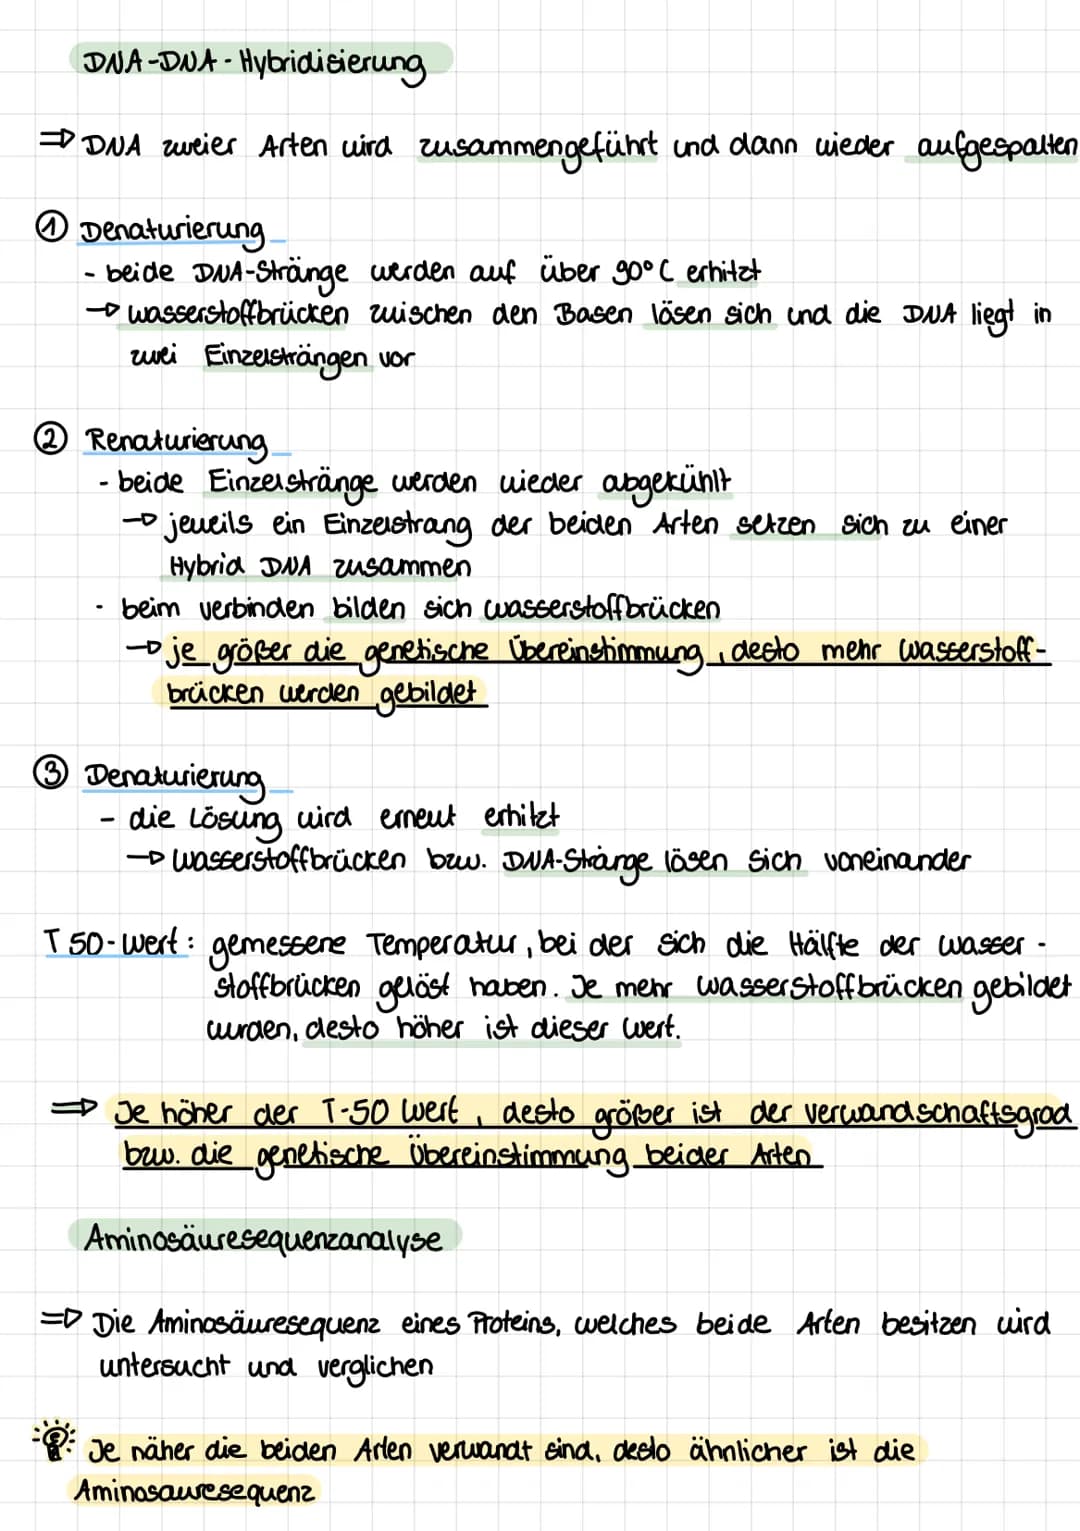 DNA-DNA-Hybridisierung
⇒ DNA zweier Arten wird zusammengeführt und dann wieder aufgespalten
① Denaturierung
- beide DNA-Stränge werden auf über 90°C erhitzt
→ Wasserstoffbrücken zwischen den Basen lösen sich und die DNA liegt in
zwei Einzelsträngen vor
② Renaturierung
- beide Einzelstränge werden wieder abgekühlt
→ jeweils ein Einzelstrang der beiden Arten setzen sich zu einer
Hybrid DNA zusammen
- beim verbinden bilden sich Wasserstoffbrücken
→ je größer die genetische Übereinstimmung, desto mehr Wasserstoff-
brücken werden gebildet
③ Denaturierung
- die Lösung wird erneut erhitzt
→ Wasserstoffbrücken bzw. DNA-Stränge lösen sich voneinander
T50-Wert: gemessene Temperatur, bei der sich die Hälfte der Wasser-
stoffbrücken gelöst haben. Je mehr Wasserstoffbrücken gebildet
wurden, desto höher ist dieser Wert.
⇒ Je höher der T-50 Wert, desto größer ist der Verwandschaftsgrad
bzw. die genetische Übereinstimmung beider Arten
Aminosäuresequenzanalyse
⇒ Die Aminosäuresequenz eines Proteins, welches beide Arten besitzen wird
untersucht und verglichen
Je näher die beiden Arten verwandt sind, desto ähnlicher ist die
Aminosauresequenz